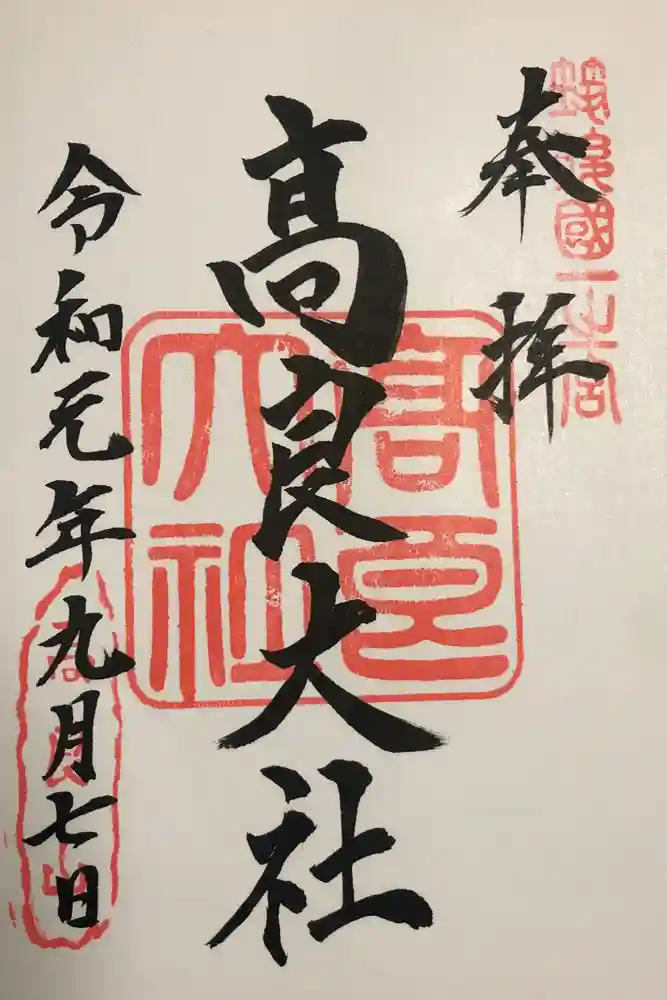 筑後國一之宮
奉拝
高良大社
高良大社
令和元年九月七日
高良山